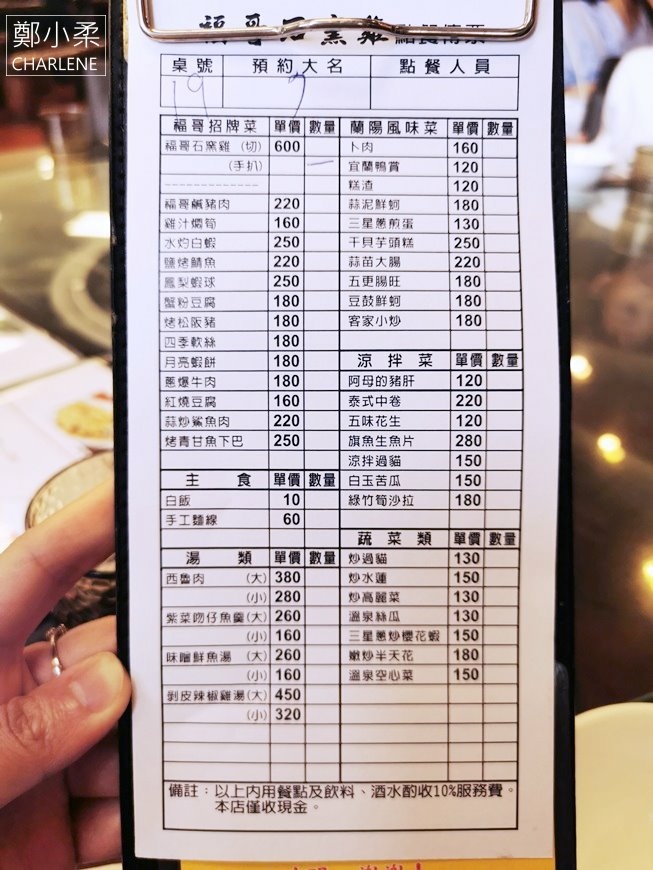 鄭小柔
CHARLENE
福哥石窯雞 點餐傳票
桌號 預約大名 點餐人員
19
福哥招牌菜 單價 數量
福哥石窯雞 (切) 600
(手扒)
福哥鹹豬肉 220
雞汁燜筍 160
水灼白蝦 250
鹽烤鯖魚 220
鳳梨蝦球 250
蟹粉豆腐 180
烤松阪豬 180
四季軟絲 180
月亮蝦餅 180
蔥爆牛肉 180
紅燒豆腐 160
蒜炒鯊魚肉 220
烤青甘魚下巴 250
主食 單價 數量
白飯 10
手工麵線 60
湯類 單價 數量
西魯肉 (大) 380
(小) 280
紫菜吻仔魚羹(大) 260
(小) 160
味噌鮮魚湯 (大) 260
(小) 160
剝皮辣椒雞湯(大) 450
(小) 320
蘭陽風味菜 單價 數量
卜肉 160
宜蘭鴨賞 120
糕渣 120
蒜泥鮮蚵 180
三星蔥煎蛋 130
干貝芋頭糕 250
蒜苗大腸 220
五更腸旺 180
豆鼓鮮蚵 180
客家小炒 180
涼拌菜 單價 數量
阿母的豬肝 120
泰式中卷 220
五味花生 120
旗魚生魚片 280
涼拌過貓 150
白玉苦瓜 150
綠竹筍沙拉 180
蔬菜類 單價 數量
炒過貓 130
炒水蓮 150
炒高麗菜 130
溫泉絲瓜 130
三星蔥炒櫻花蝦 150
嫩炒半天花 180
溫泉空心菜 150
備註：以上內用餐點及飲料、酒水酌收10%服務費。
本店僅收現金。